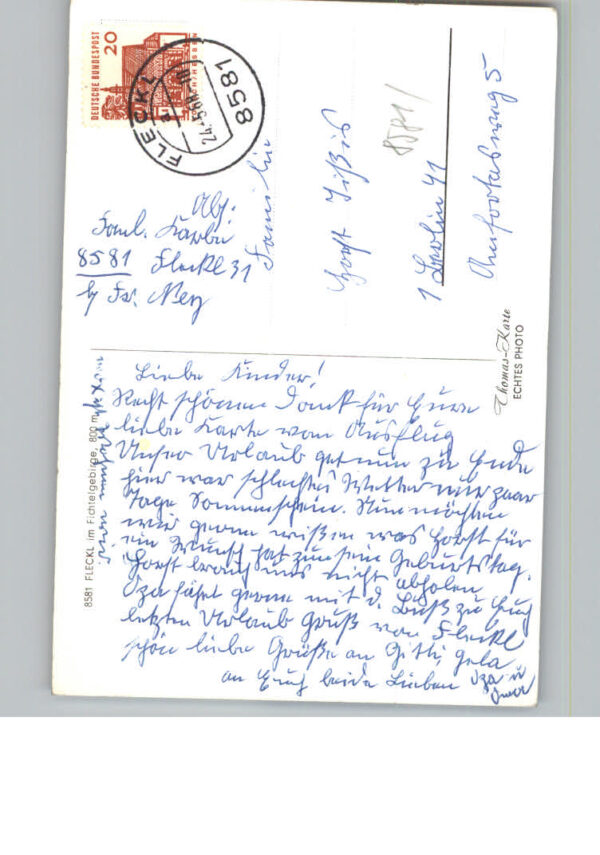 DEUTSCHE BUNDESPOST
20
FLECKL
8581
24.-5.68
Abs:
Faml. Korbu
8581 Fleckl 31
b/ Fr. Merz
Familie
Horst
1 Berlin 41
8581
Thomas-Karte
ECHTES PHOTO
8581 FLECKL im Fichtelgebirge, 800 m
Liebe Kinder!
Recht schönen Dank für Eure
liebe Karte vom Ausflug
Unser Urlaub get nun zu Ende
hier war schlechtes Wetter nur paar
Tage Sonnenschein. Nun möchten
wir gerne wißen was Horst für
ein Wunsch hat zum sein Geburtstag.
Horst brauch uns nicht abholen
Opa fährt gerne mit d. Buß zu Euch
letzten Urlaub Gruß von Fleckl
schön liebe Grüße an Gitti, Gela
an Euch beide Lieben Opa u
Oma